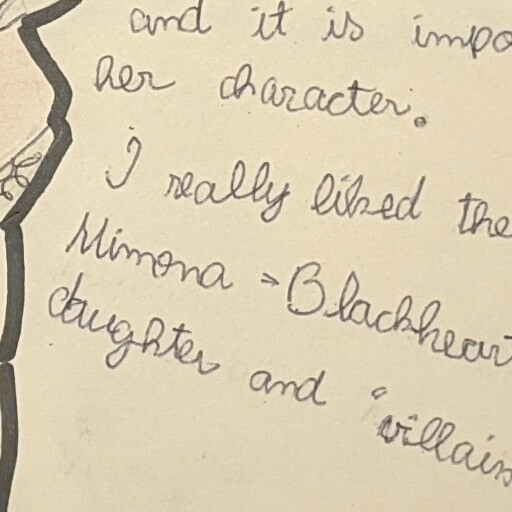 and it is impo
her character.
I really liked the
Mimona - Blackheart
daughter and "villain